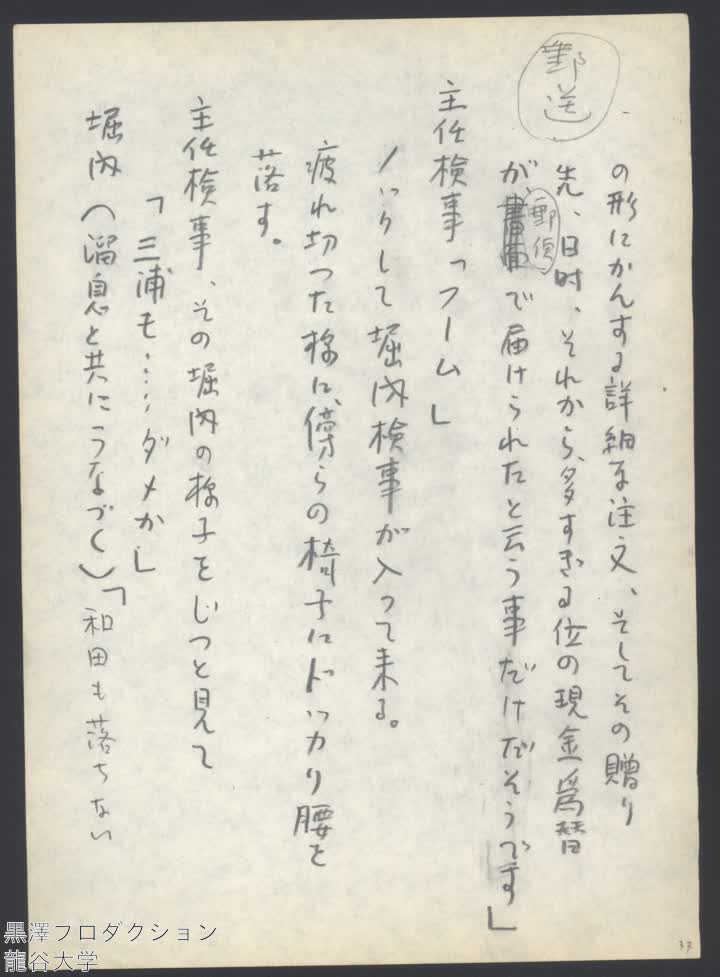 郵送
の形にかんする詳細な注文、そしてその贈り
先、日時、それから、多すぎる位の現金為替
が、郵便で届けられたと云う事だけだそうです」
主任検事「フーム」
ノックして堀内検事が入って来る。
疲れ切った様に、傍らの椅子にドッカリ腰を
落す。
主任検事、その堀内の様子をじっと見て
「三浦も……ダメか」
堀内（溜息と共にうなづく）「和田も落ちない
33
黒澤プロダクション
龍谷大学